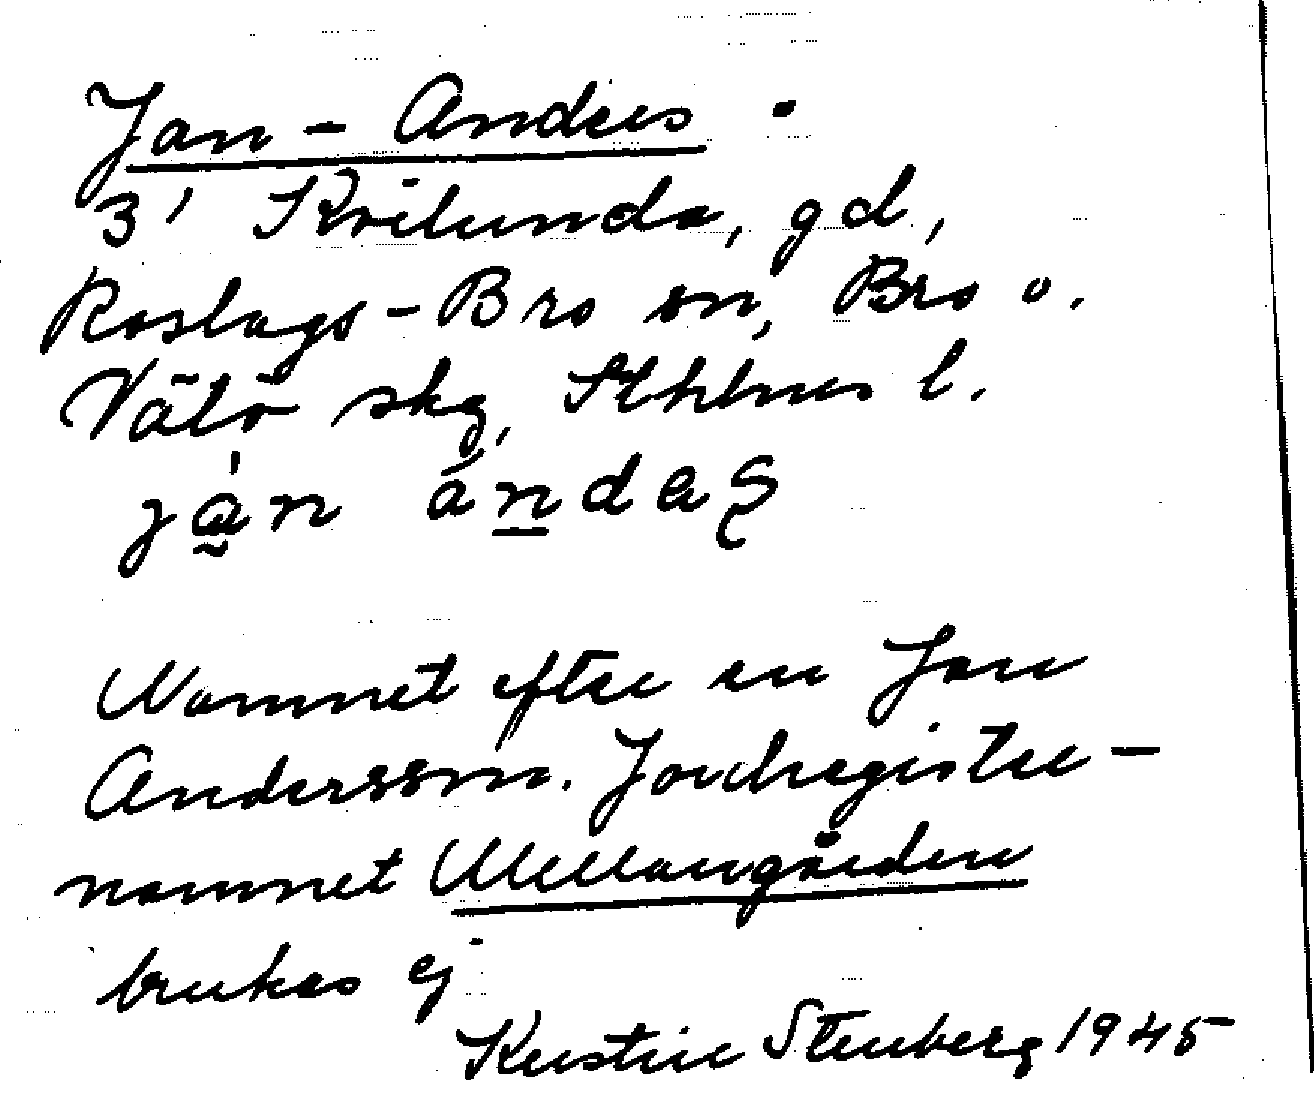 Jan-Anders.
3' Kvilunda, gd,
Roslags-Bro sn, Bro o.
Vätö skg, Sthlms l.
Namnet efter en Jan
Andersson. Jordregister-
namnet Mellangården
brukas ej
Kerstin Stenberg 1945